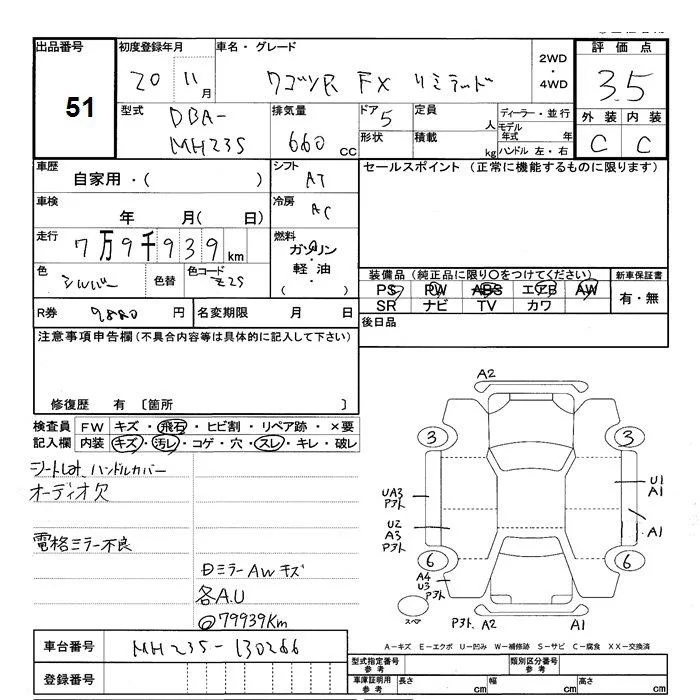 出品番号 初度登録年月 車名・グレード 2WD・4WD 評価点
51 20 11月 ワゴンR FX リミテッド 3.5
型式 DBA-MH23S 排気量 660 cc ドア 5 定員 人 ディーラー・並行 外装 内装
形状 積載 kg モデル年式 年 ハンドル 左・右 C C
車歴 自家用・( ) シフト AT セールスポイント (正常に機能するものに限ります)
車検 年 月( 日) 冷房 AC
走行 7万9千939km 燃料 ガソリン・軽油・( )
色 シルバー 色替 色コード Z2S
装備品 (純正品に限り〇をつけてください) 新車保証書
PS PW ABS エアB AW 有・無
SR ナビ TV カワ
R券 9880円 名変期限 月 日 後日品
注意事項申告欄 (不具合内容等は具体的に記入して下さい)
修復歴 有 〔箇所 〕
検査員 FW キズ・飛石・ヒビ割・リペア跡・×要
記入欄 内装 キズ・汚レ・コゲ・穴・スレ・キレ・破レ
シートしみ、ハンドルカバー
オーディオ欠
電格ミラー不良
Dミラー AW キズ
各A.U
@79939Km
A2
3 3
UA3 アスト
U1 A1
U2 A3 アスト
A1
6 6
A4 U3 アスト
スペア
アスト A2 A1
A-キズ E-エクボ U-凹み W-補修跡 S-サビ C-腐食 XX-交換済
車台番号 MH23S-130266
登録番号
型式指定番号 参考 類別区分番号 参考
車庫証明用 参考 長さ cm 幅 cm 高さ cm